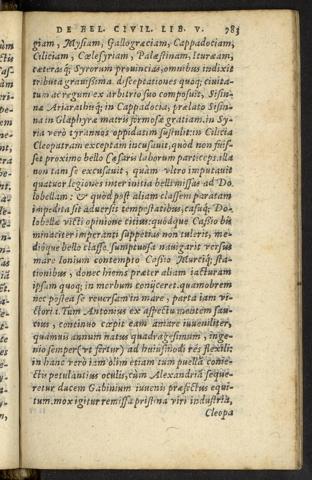 DE BEL. CIVIL. LIB. V. 783
giam, Mysiam, Gallogræciam, Cappadociam,
Ciliciam, Cœlesyriam, Palæstinam, Ituræam,
cæterasq; Syrorum prouincias, omnibus indixit
tributa grauissima. disceptationes quoq; ciuita-
tum ac regum ex arbitrio suo composuit, Sisin-
næ Ariarathisq; in Cappadocia, prælato Sisin-
na in Glaphyræ matris formosæ gratiam. in Sy-
ria verò tyrannos oppidatim sustulit: in Cilicia
Cleopatram exceptam incusauit, quòd non fuis-
set proximo bello Cæsaris laborum particeps. illa
non tam se excusauit, quàm vltro imputauit
quatuor legiones inter initia belli missas ad Do-
lobellam: & quòd post aliam classem paratam
impedita sit aduersis tempestatibus, casuq; Do-
lobellæ victi opinione citius: quodque Cassio bis
minaciter imperanti suppetias non tulerit, me-
dióque bello classe sumptuosa nauigarit versus
mare Ionium contempto Cassio Murciq; sta-
tionibus, donec hiems præter aliam iacturam
ipsam quoq; in morbum conijceret. quamobrem
nec postea se reuersam in mare, parta iam vi-
ctori t. Tum Antonius ex aspectu mentem sau-
cius, continuo cœpit eam amare iuueniliter,
quamuis annum natus quadragesimum, inge-
nio semper (vt fertur) ad huiusmodi res flexili:
in hanc verò iem olim etiam tum puellã conie-
ctis petulantius oculis, cùm Alexandriã seque-
retur ducem Gabinium iuuenis præfectus equi-
tum. mox igitur remissa pristina viri industria,
Cleopa